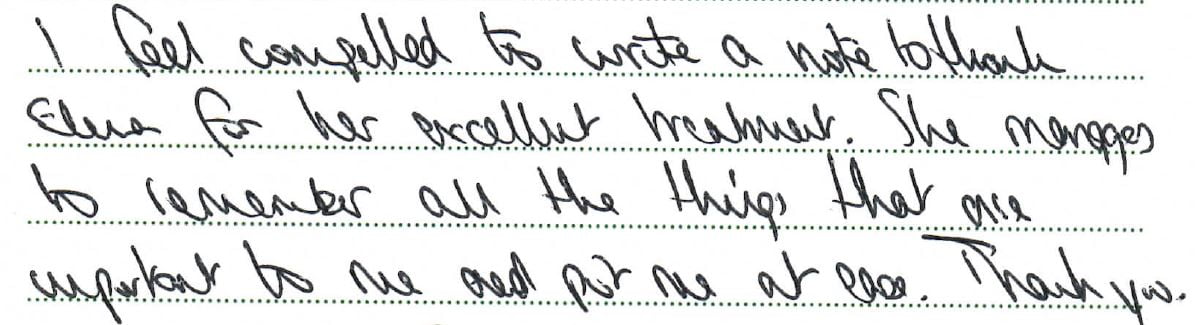 I feel compelled to write a note to thank
Elena for her excellent treatment. She manages
to remember all the things that are
important to me and put me at ease. Thank you.